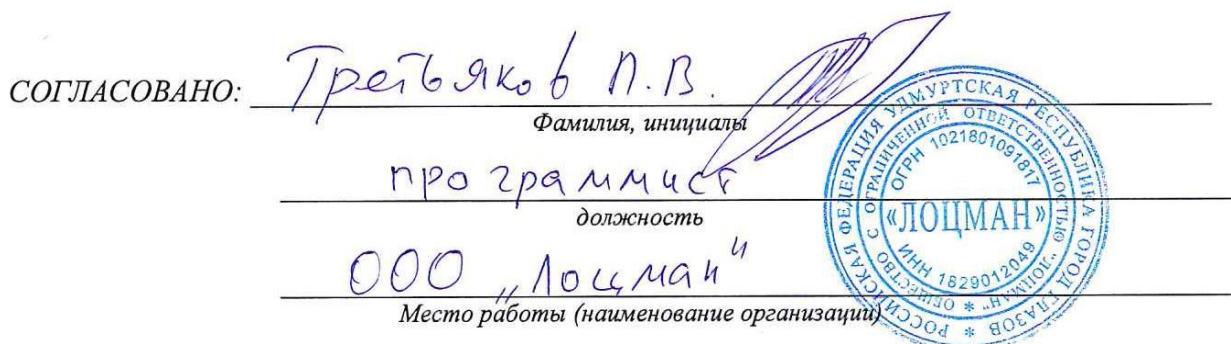 СОГЛАСОВАНО: Третьяков П.В.
Фамилия, инициалы
программист
должность
ООО „Лоцман"
Место работы (наименование организации)
РОССИЙСКАЯ ФЕДЕРАЦИЯ УДМУРТСКАЯ РЕСПУБЛИКА ГОРОД ГЛАЗОВ *
ОБЩЕСТВО С ОГРАНИЧЕННОЙ ОТВЕТСТВЕННОСТЬЮ "ЛОЦМАН" *
ОГРН 1021801091817
«ЛОЦМАН»
ИНН 1829012049